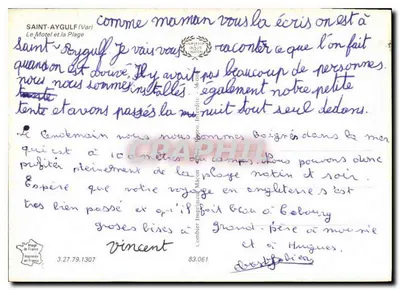 SAINT-AYGULF (Var)
Le Motel et la Plage
comme maman vous la écris on est à
Saint-Aygulf Je vais vous raconter ce que l'on fait
quand on est arrivé. Il y avait pas beaucoup de personnes.
nous nous sommes installés également notre petite
tente et avons passés la nuit tout seul dedans.
le lendemain nous nous sommes baignés dans la mer
qui est à 100 mètres du camps. nous pouvons donc
profiter pleinement de la plage matin et soir.
Espère que notre voyage en angleterre s'est
très bien passé et qu'il fait beau à Cabourg
Grosses bises à Grand-père à mamie
et à Hugues.
Vincent
3.27.79.1307
83.061